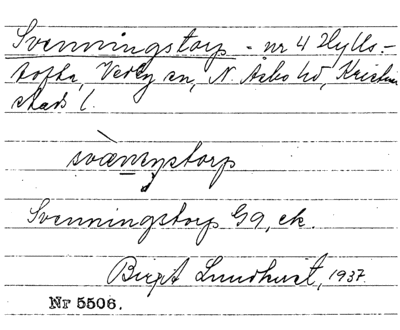 Svenningstorp - nr 4 Hylls-
tofta, Vedby sn, N. Åsbo hd, Kristian
stads l.
svæ̀nıŋstorp
Svenningstorp Ga, ek.
Birgit Lundkvist, 1937.
Nr 5506.